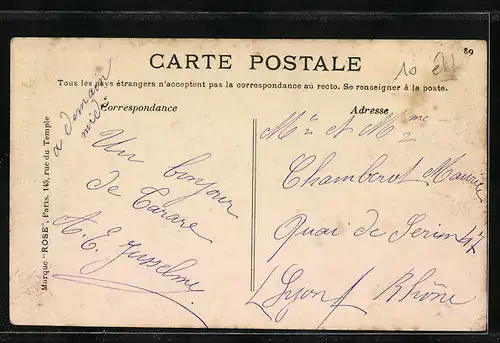 89
CARTE POSTALE
10
Tous les pays étrangers n'acceptent pas la correspondance au recto. Se renseigner à la poste.
Correspondance
Adresse
a demain
midi
Un bonjour
de Tarare
A. E. Jusselme
Mr et Mme
Chamberot Maurice
Quai de Serin 47
Lyon Rhône
Marque "ROSE", Paris, 145, rue du Temple